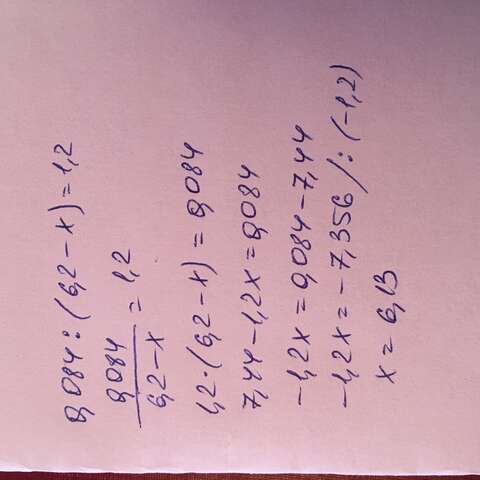 0,084 : (6,2 - x) = 1,2
0,084 / 6,2 - x = 1,2
1,2 · (6,2 - x) = 0,084
7,44 - 1,2x = 0,084
-1,2x = 0,084 - 7,44
-1,2x = -7,356 / : (-1,2)
x = 6,13